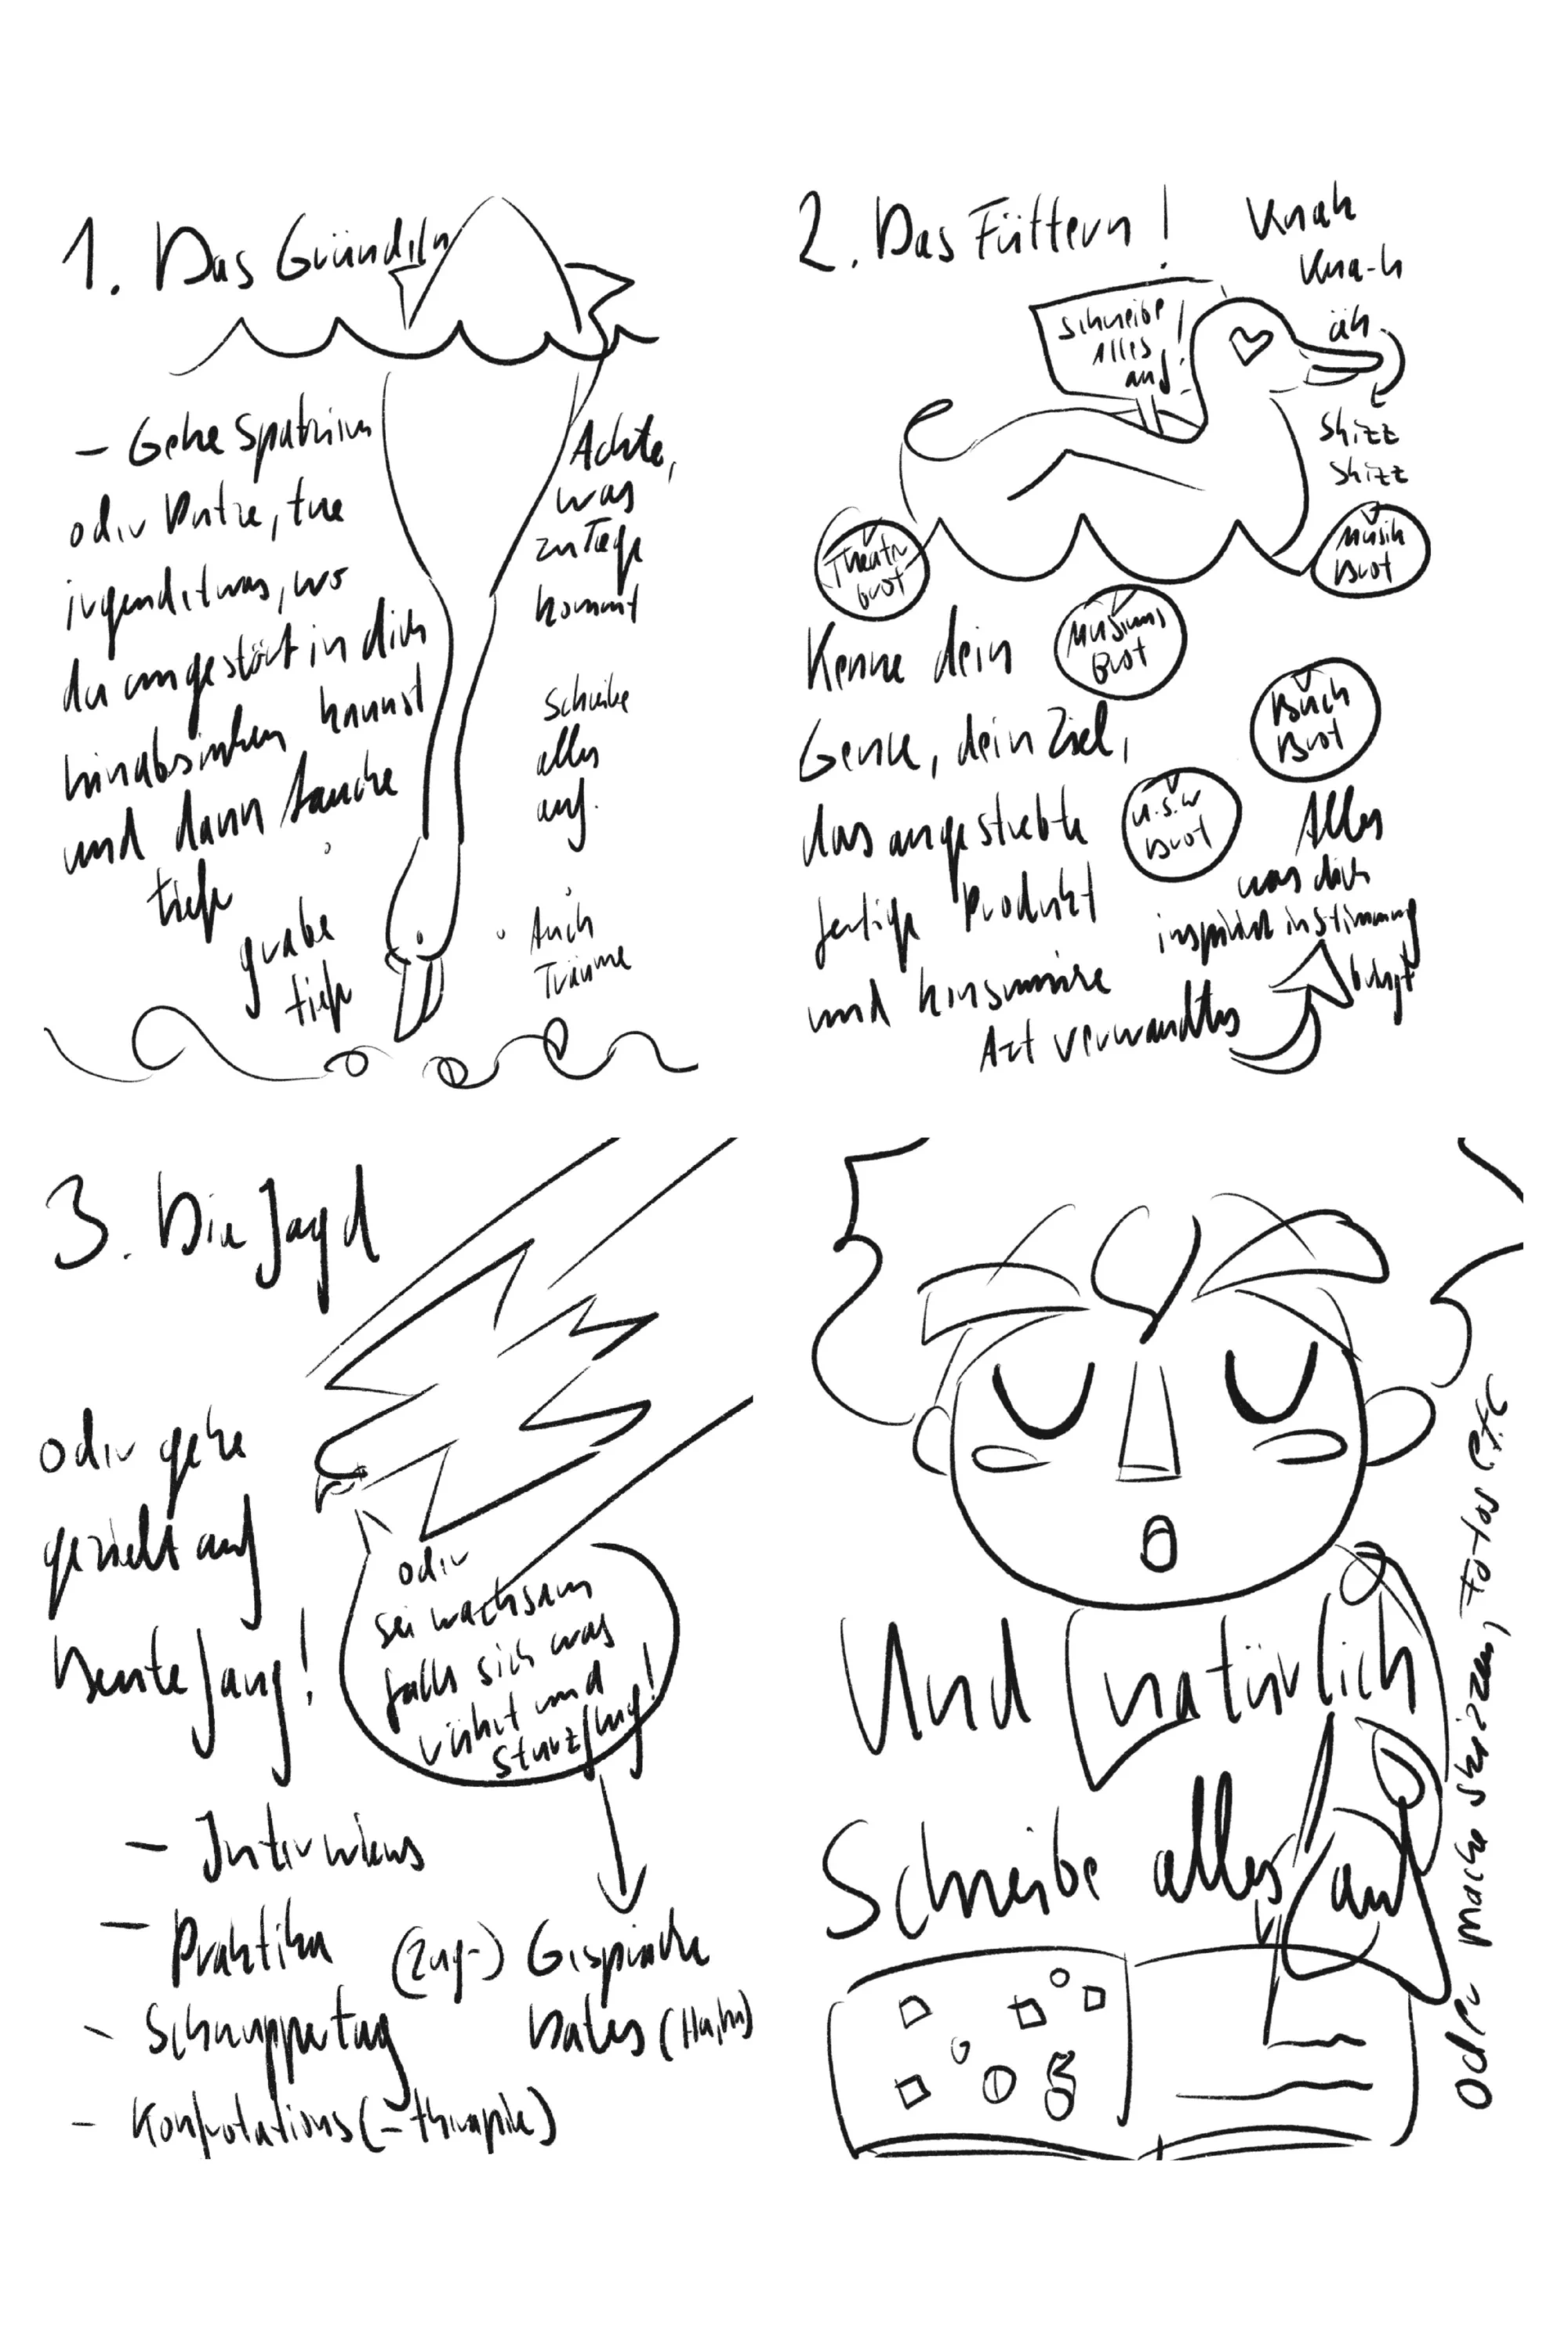 1. Das Gründeln
- Gehe spatzieren
oder Putze, tue
irgendetwas, wo
du ungestört in dich
hinabsinken kannst
und dann tauche
tiefe
grabe
tiefe
Achte,
was
zu Tage
kommt
Schreibe
alles
auf.
Auch
Träume
2. Das Füttern!
Knak
Kna-k
äk
Schreibe
Alles
auf!
Skizz
Skizz
Theater
Brot
Musik
Brot
Museums
Brot
Buch
Brot
u.s.w
Brot
Kenne dein
Genre, dein Ziel,
das angestrebte
fertige Produkt
und konsumiere
Art verwandtes
Alles
was dich
inspiriert in stimmung
bringt
3. Die Jagd
oder gehe
gezielt auf
Beutefang!
oder
sei wachsam
falls sich was
rührt und
sturzflug!
- Interviews
- Praktika
- Schnuppertag
- Konfrotations (-therapie)
(Zug-) Gespräche
Dates (Haha)
Und natürlich
Schreibe alles auf
oder mache skizzen, Fotos etc